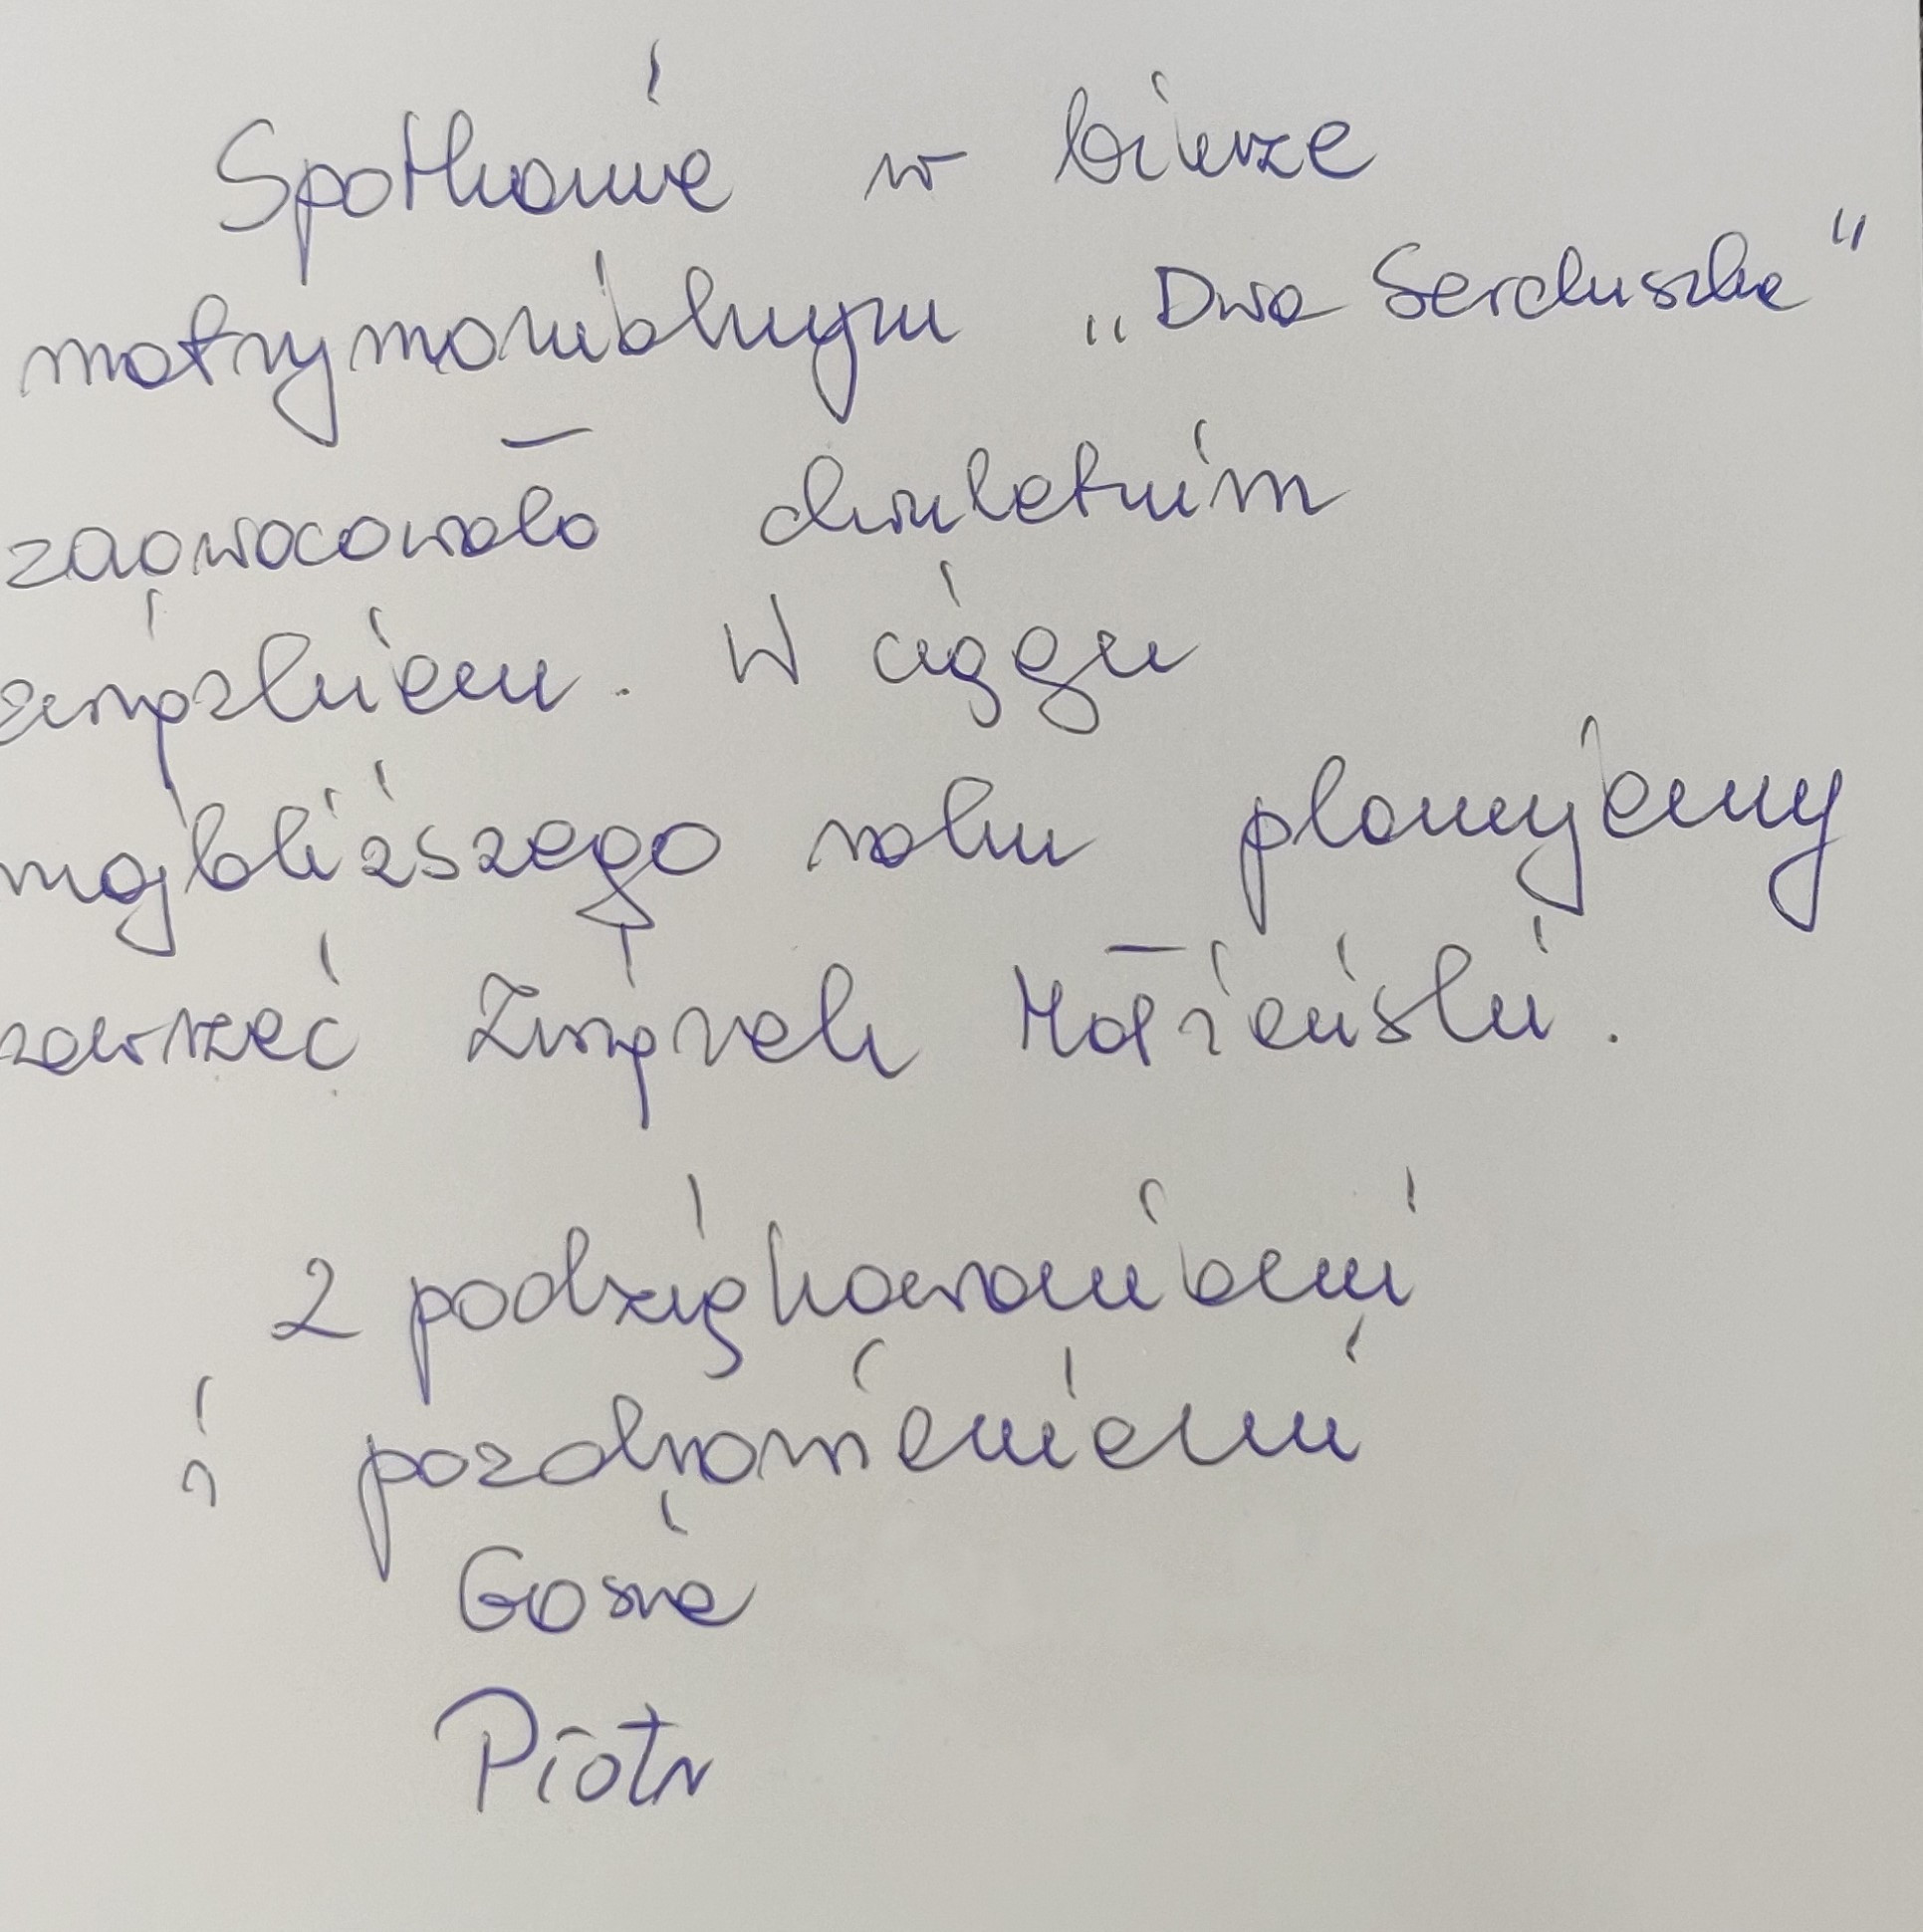 Spotkanie w biurze
matrymonialnym „Dwa Serduszka"
zaowocowało dwuletnim
związkiem. W ciągu
najbliższego roku planujemy
zawrzeć Związek Małżeński.
Z podziękowaniami
i pozdrowieniami
Gosia
Piotr